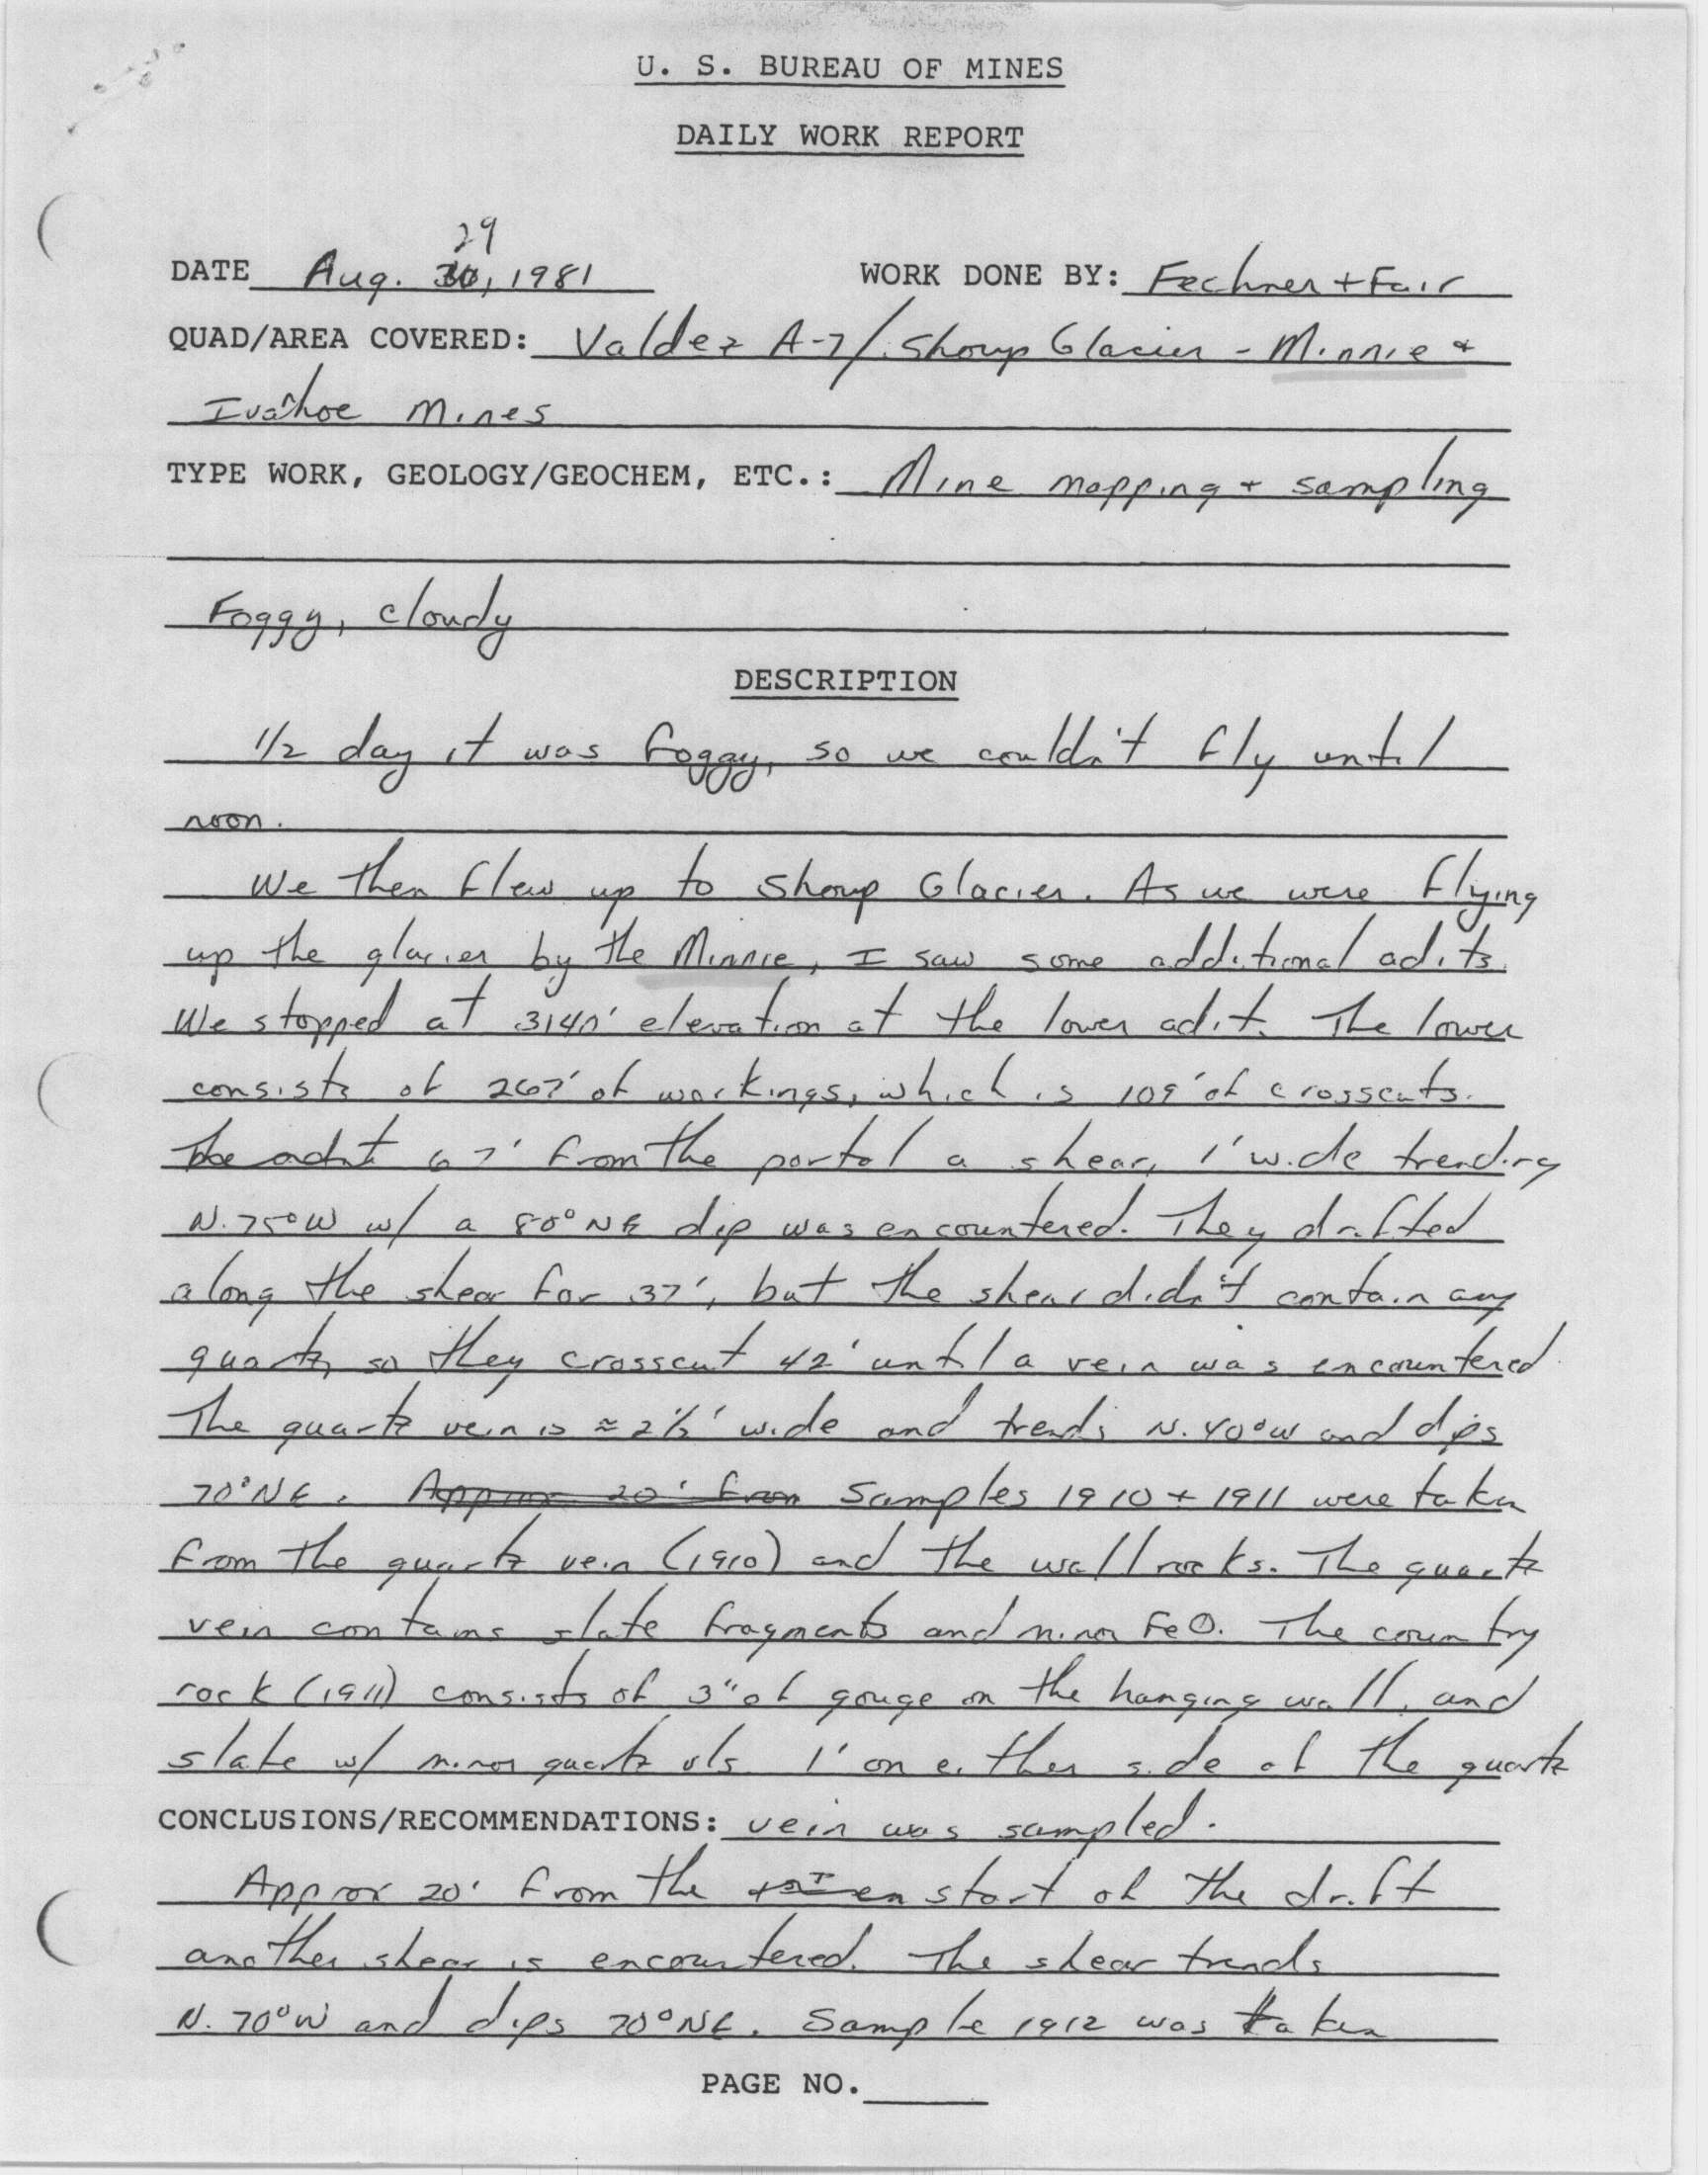 U. S. BUREAU OF MINES
DAILY WORK REPORT
29
DATE Aug. 30, 1981 WORK DONE BY: Fechner + Fair
QUAD/AREA COVERED: Valdez A-7/Shoup Glacier - Minnie +
Ivanhoe Mines
TYPE WORK, GEOLOGY/GEOCHEM, ETC.: Mine mapping + sampling
Foggy, cloudy
DESCRIPTION
1/2 day it was foggy, so we couldn't fly until
noon.
We then flew up to Shoup Glacier. As we were flying
up the glacier by the Minnie, I saw some additional adits.
We stopped at 3140' elevation at the lower adit. The lower
consists of 267' of workings, which is 109' of crosscuts.
The adit 67' from the portal a shear, 1' wide trending
N.75°W w/ a 80°NE dip was encountered. They drifted
along the shear for 37', but the shear didn't contain any
quartz, so they crosscut 42' until a vein was encountered.
The quartz vein is ≈ 2½' wide and trends N.40°W and dips
70°NE. Approx 20' from Samples 1910 + 1911 were taken
from the quartz vein (1910) and the wall rocks. The quartz
vein contains slate fragments and minor FeO. The country
rock (1911) consists of 3" of gouge on the hanging wall, and
slate w/ minor quartz vls 1' on either side of the quartz
CONCLUSIONS/RECOMMENDATIONS: vein was sampled.
Approx 20' from the start of the drift
another shear is encountered. The shear trends
N.70°W and dips 70°NE. Sample 1912 was taken
PAGE NO.